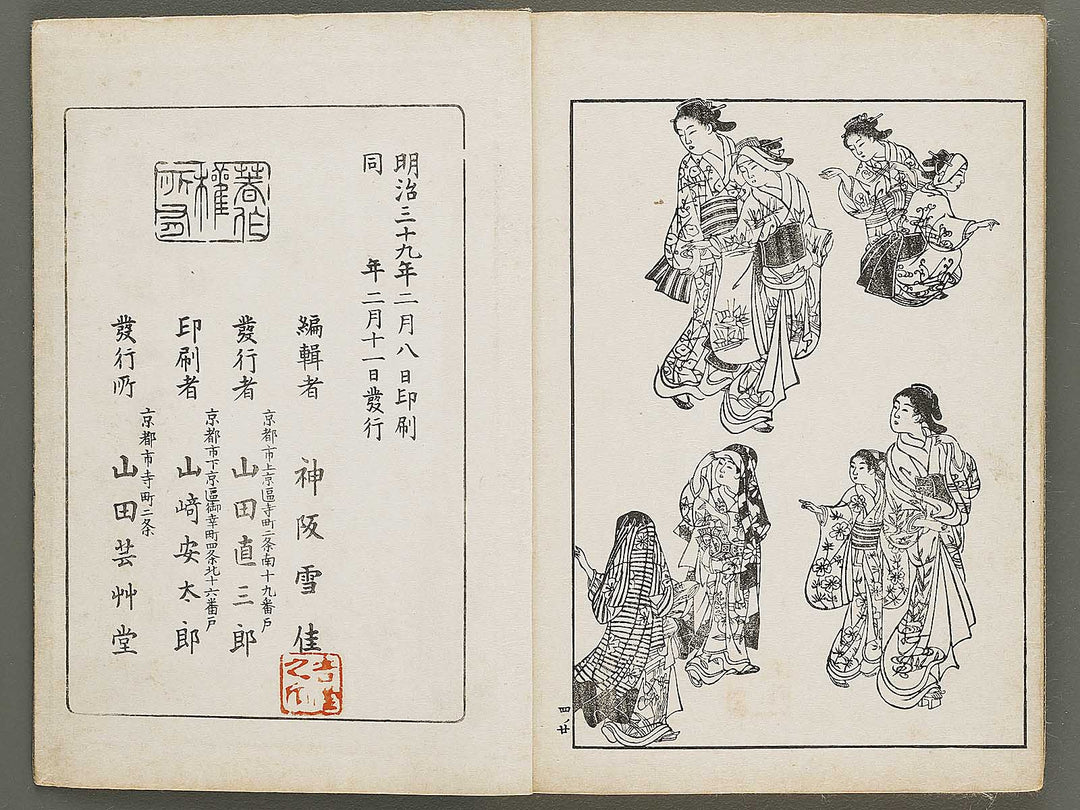 四ノ廿
明治三十九年二月八日印刷
同　年二月十一日發行
編輯者　神阪雪佳
京都市上京區寺町二条南十九番戶
發行者　山田直三郎
京都市下京區御幸町四条北十六番戶
印刷者　山﨑安太郎
京都市寺町二条
發行所　山田芸艸堂
著作
權
所有